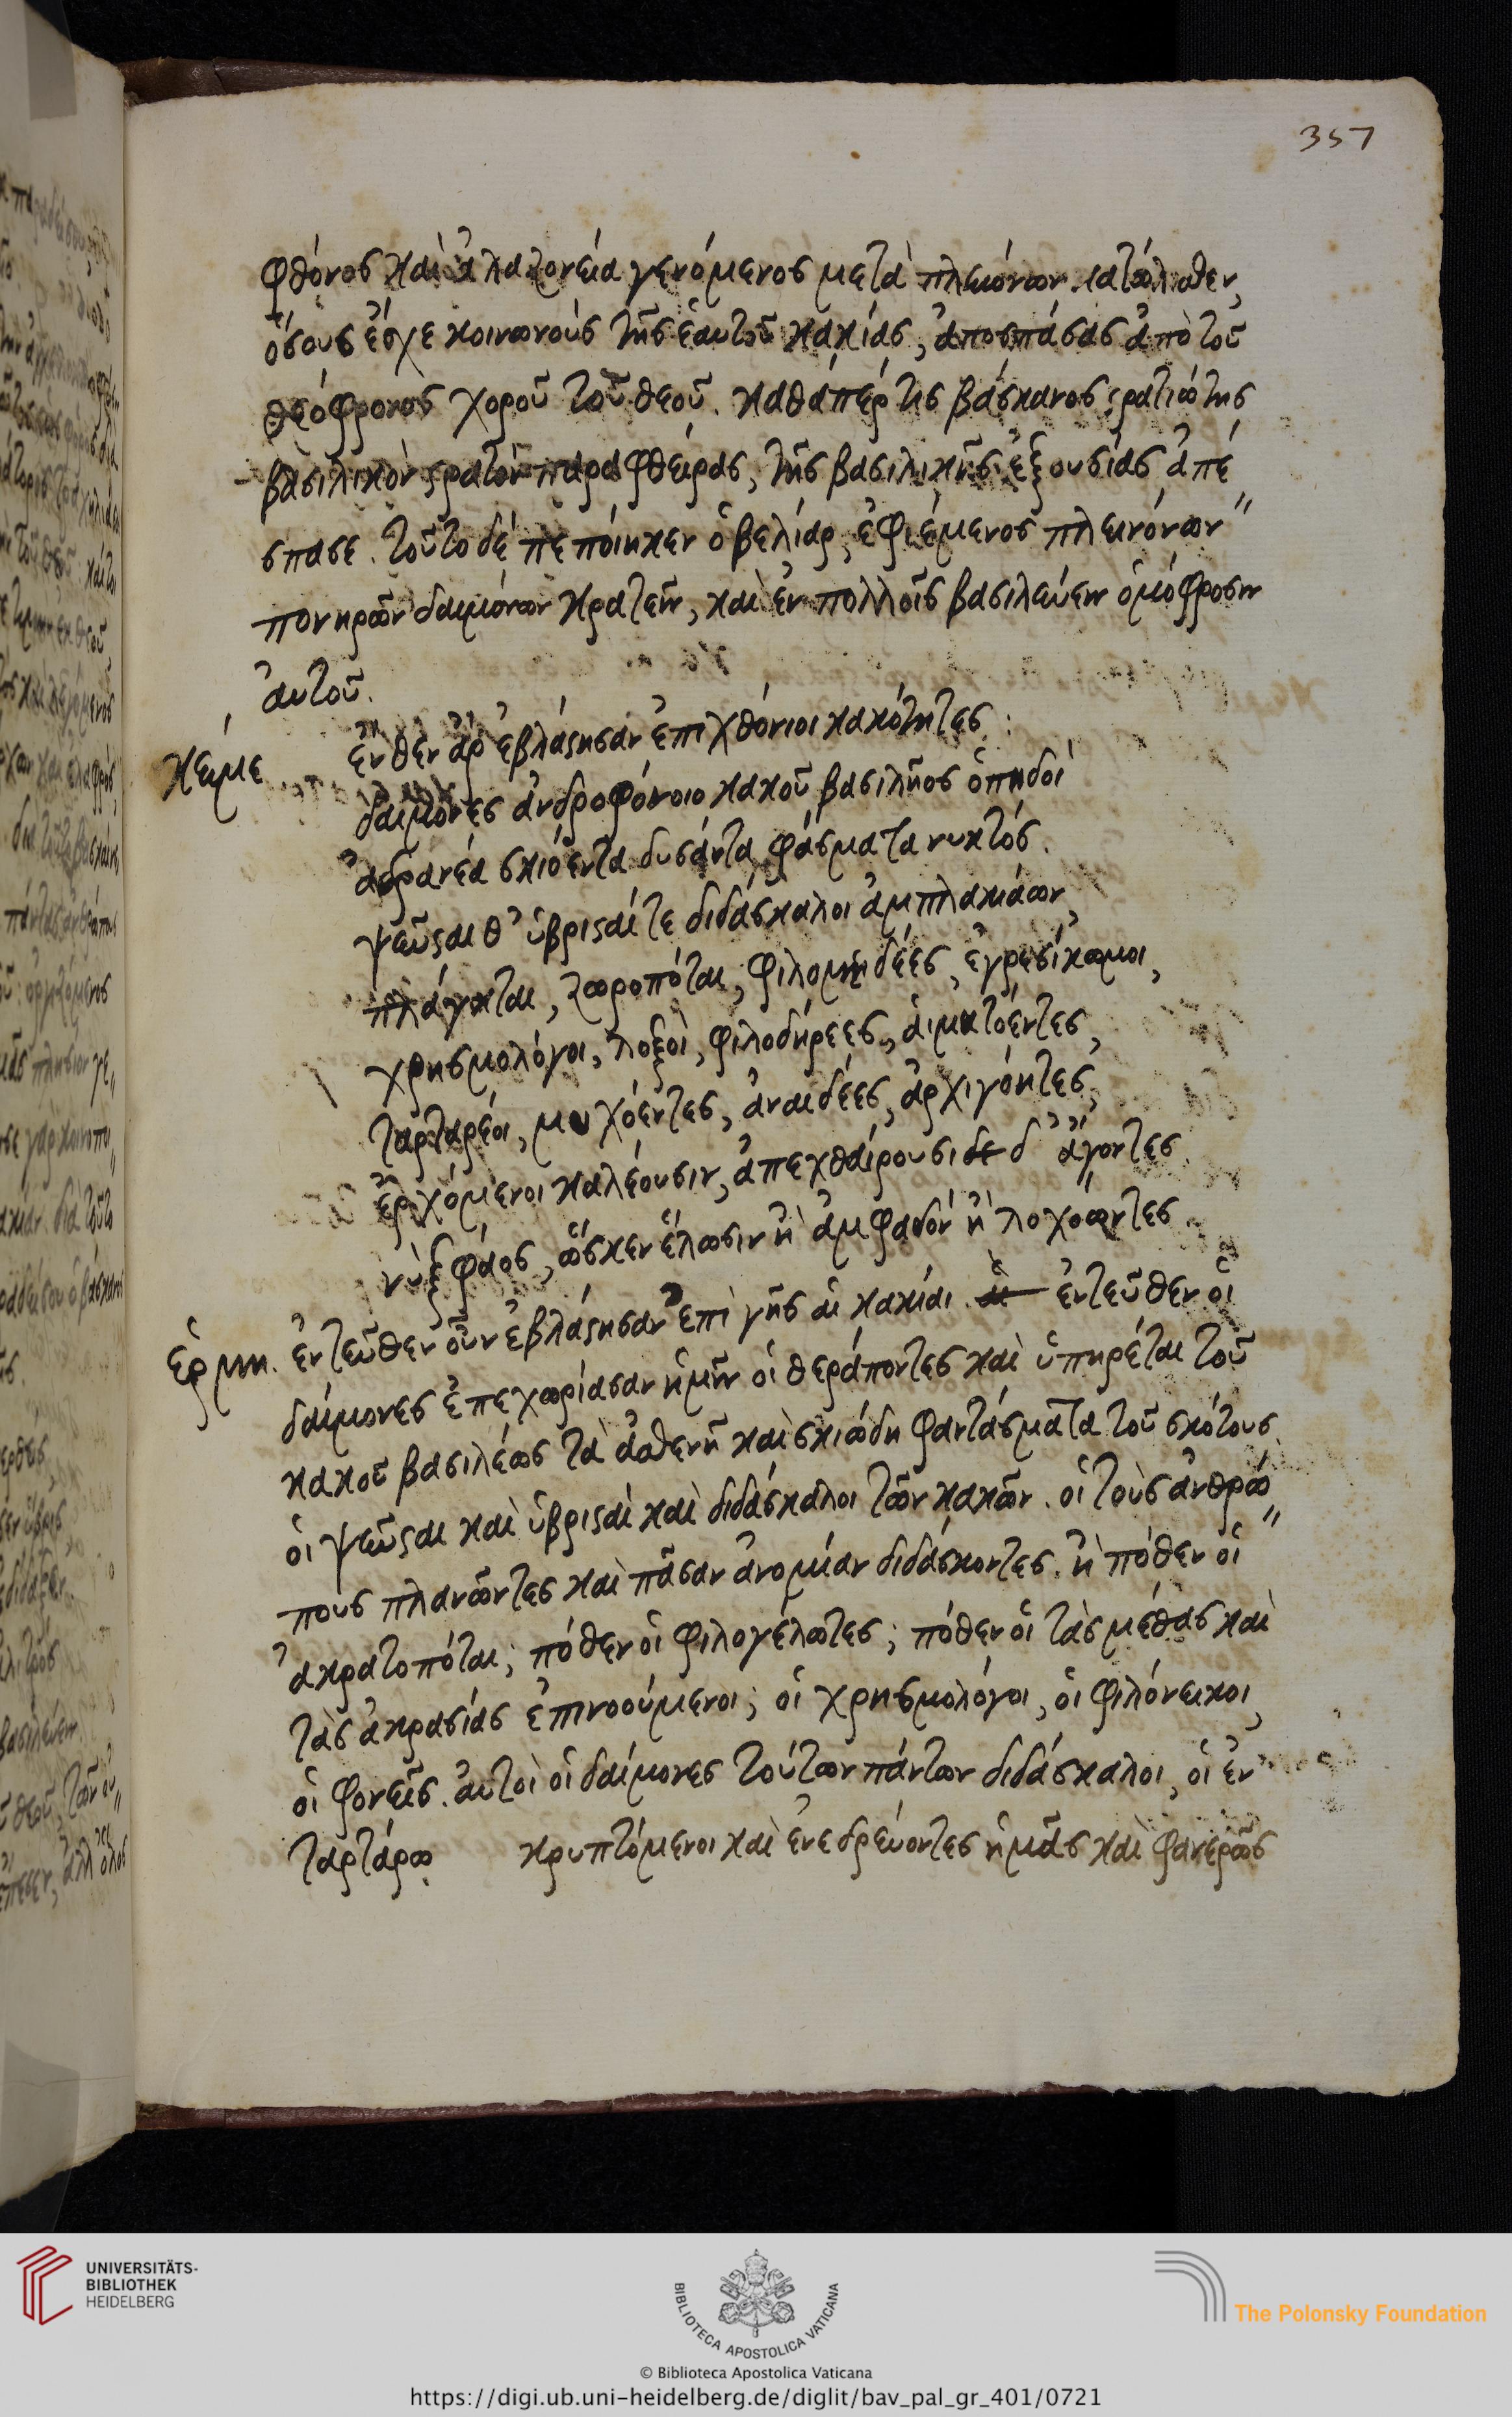 357
φθόνος καὶ ἀλαζονεία γενόμενος μετὰ πλειόνων κατώλισθεν,
ὅσους ἔσχε κοινωνοὺς τῆς ἑαυτοῦ κακίας, ἀποσπάσας ἀπὸ τοῦ
θεόφρονος χοροῦ τοῦ θεοῦ. καθάπέρ τις βάσκανος στρατιώτης
βασιλικὸν στρατὸν παραφθείρας, τῆς βασιλικῆς ἐξουσίας ἀπέ
σπασε. τοῦτο δὲ πεποίηκεν ὁ βελίαρ, ἐφιέμενος πλειόνων
πονηρῶν δαιμόνων κρατεῖν, καὶ ἐν πολλοῖς βασιλεύειν ὁμόφροσιν
αὐτοῦ.
κείμε ἔνθεν ἄρ ἐβλάστησαν ἐπιχθόνιοι κακότητες:
δαίμονες ἀνδροφόνοιο κακοῦ βασιλῆος ὀπηδοὶ
ἀδρανέα σκιόεντα δυσάντα φάσματα νυκτός.
ψεῦσται θ' ὑβρισταί τε διδάσκαλοι ἀμπλακιάων,
πλάγκται, ζωροπόται, φιλομηδέες, ἐγρεσίκωμοι,
χρησμολόγοι, λοξοὶ, φιλοδήρεες, αἱματόεντες,
ταρτάρεοι, μυχόεντες, ἀναιδέες, ἀρχιγόητες,
ἐρχόμενοι καλέουσιν, ἀπεχθαίρουσι δε δ' ἄγοντες.
νὺξ φάος, ὥς κεν ἕλωσιν ἢ ἀμφαδὸν ἢ λοχόωντες
ἑρμη. ἐντεῦθεν οὖν ἐβλάστησαν ἐπὶ γῆς αἱ κακίαι. αἱ ἐντεῦθεν οἱ
δαίμονες ἐπεχωρίασαν ἡμῖν οἱ θεράποντες καὶ ὑπηρέται τοῦ
κακοῦ βασιλέως τὰ ἀσθενῆ καὶ σκιώδη φαντάσματα τοῦ σκότους
οἱ ψεῦσται καὶ ὑβρισταὶ καὶ διδάσκαλοι τῶν κακῶν. οἱ τοὺς ἀνθρώ
πους πλανῶντες καὶ πᾶσαν ἀνομίαν διδάσκοντες. ἢ πόθεν οἱ
ἀκρατοπόται; πόθεν οἱ φιλογέλωτες; πόθεν οἱ τὰς μέθας καὶ
τὰς ἀκρασίας ἐπινοούμενοι; οἱ χρησμολόγοι, οἱ φιλόνεικοι,
οἱ φονεῖς. αὐτοὶ οἱ δαίμονες τούτων πάντων διδάσκαλοι, οἱ ἐν
ταρτάρῳ κρυπτόμενοι καὶ ἐνεδρεύοντες ἡμᾶς καὶ φανερῶς
UNIVERSITÄTS-
BIBLIOTHEK
HEIDELBERG
BIBLIOTECA APOSTOLICA VATICANA
The Polonsky Foundation
© Biblioteca Apostolica Vaticana
https://digi.ub.uni-heidelberg.de/diglit/bav_pal_gr_401/0721